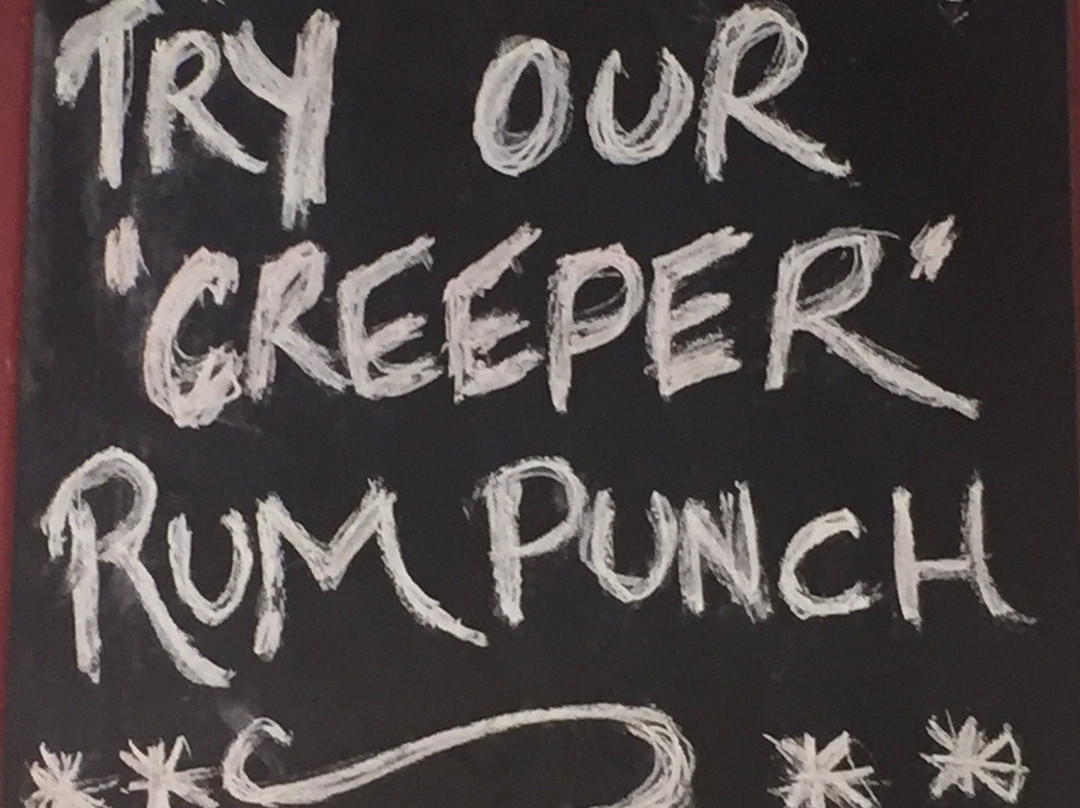 TRY OUR
"CREEPER"
RUM PUNCH